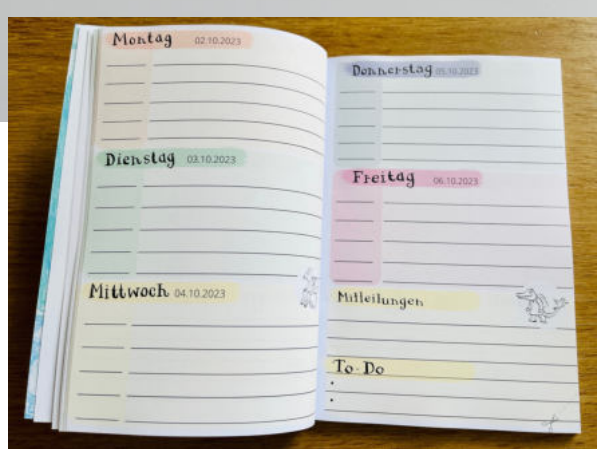 Montag 02.10.2023
Dienstag 03.10.2023
Mittwoch 04.10.2023
Donnerstag 05.10.2023
Freitag 06.10.2023
Mitteilungen
To-Do